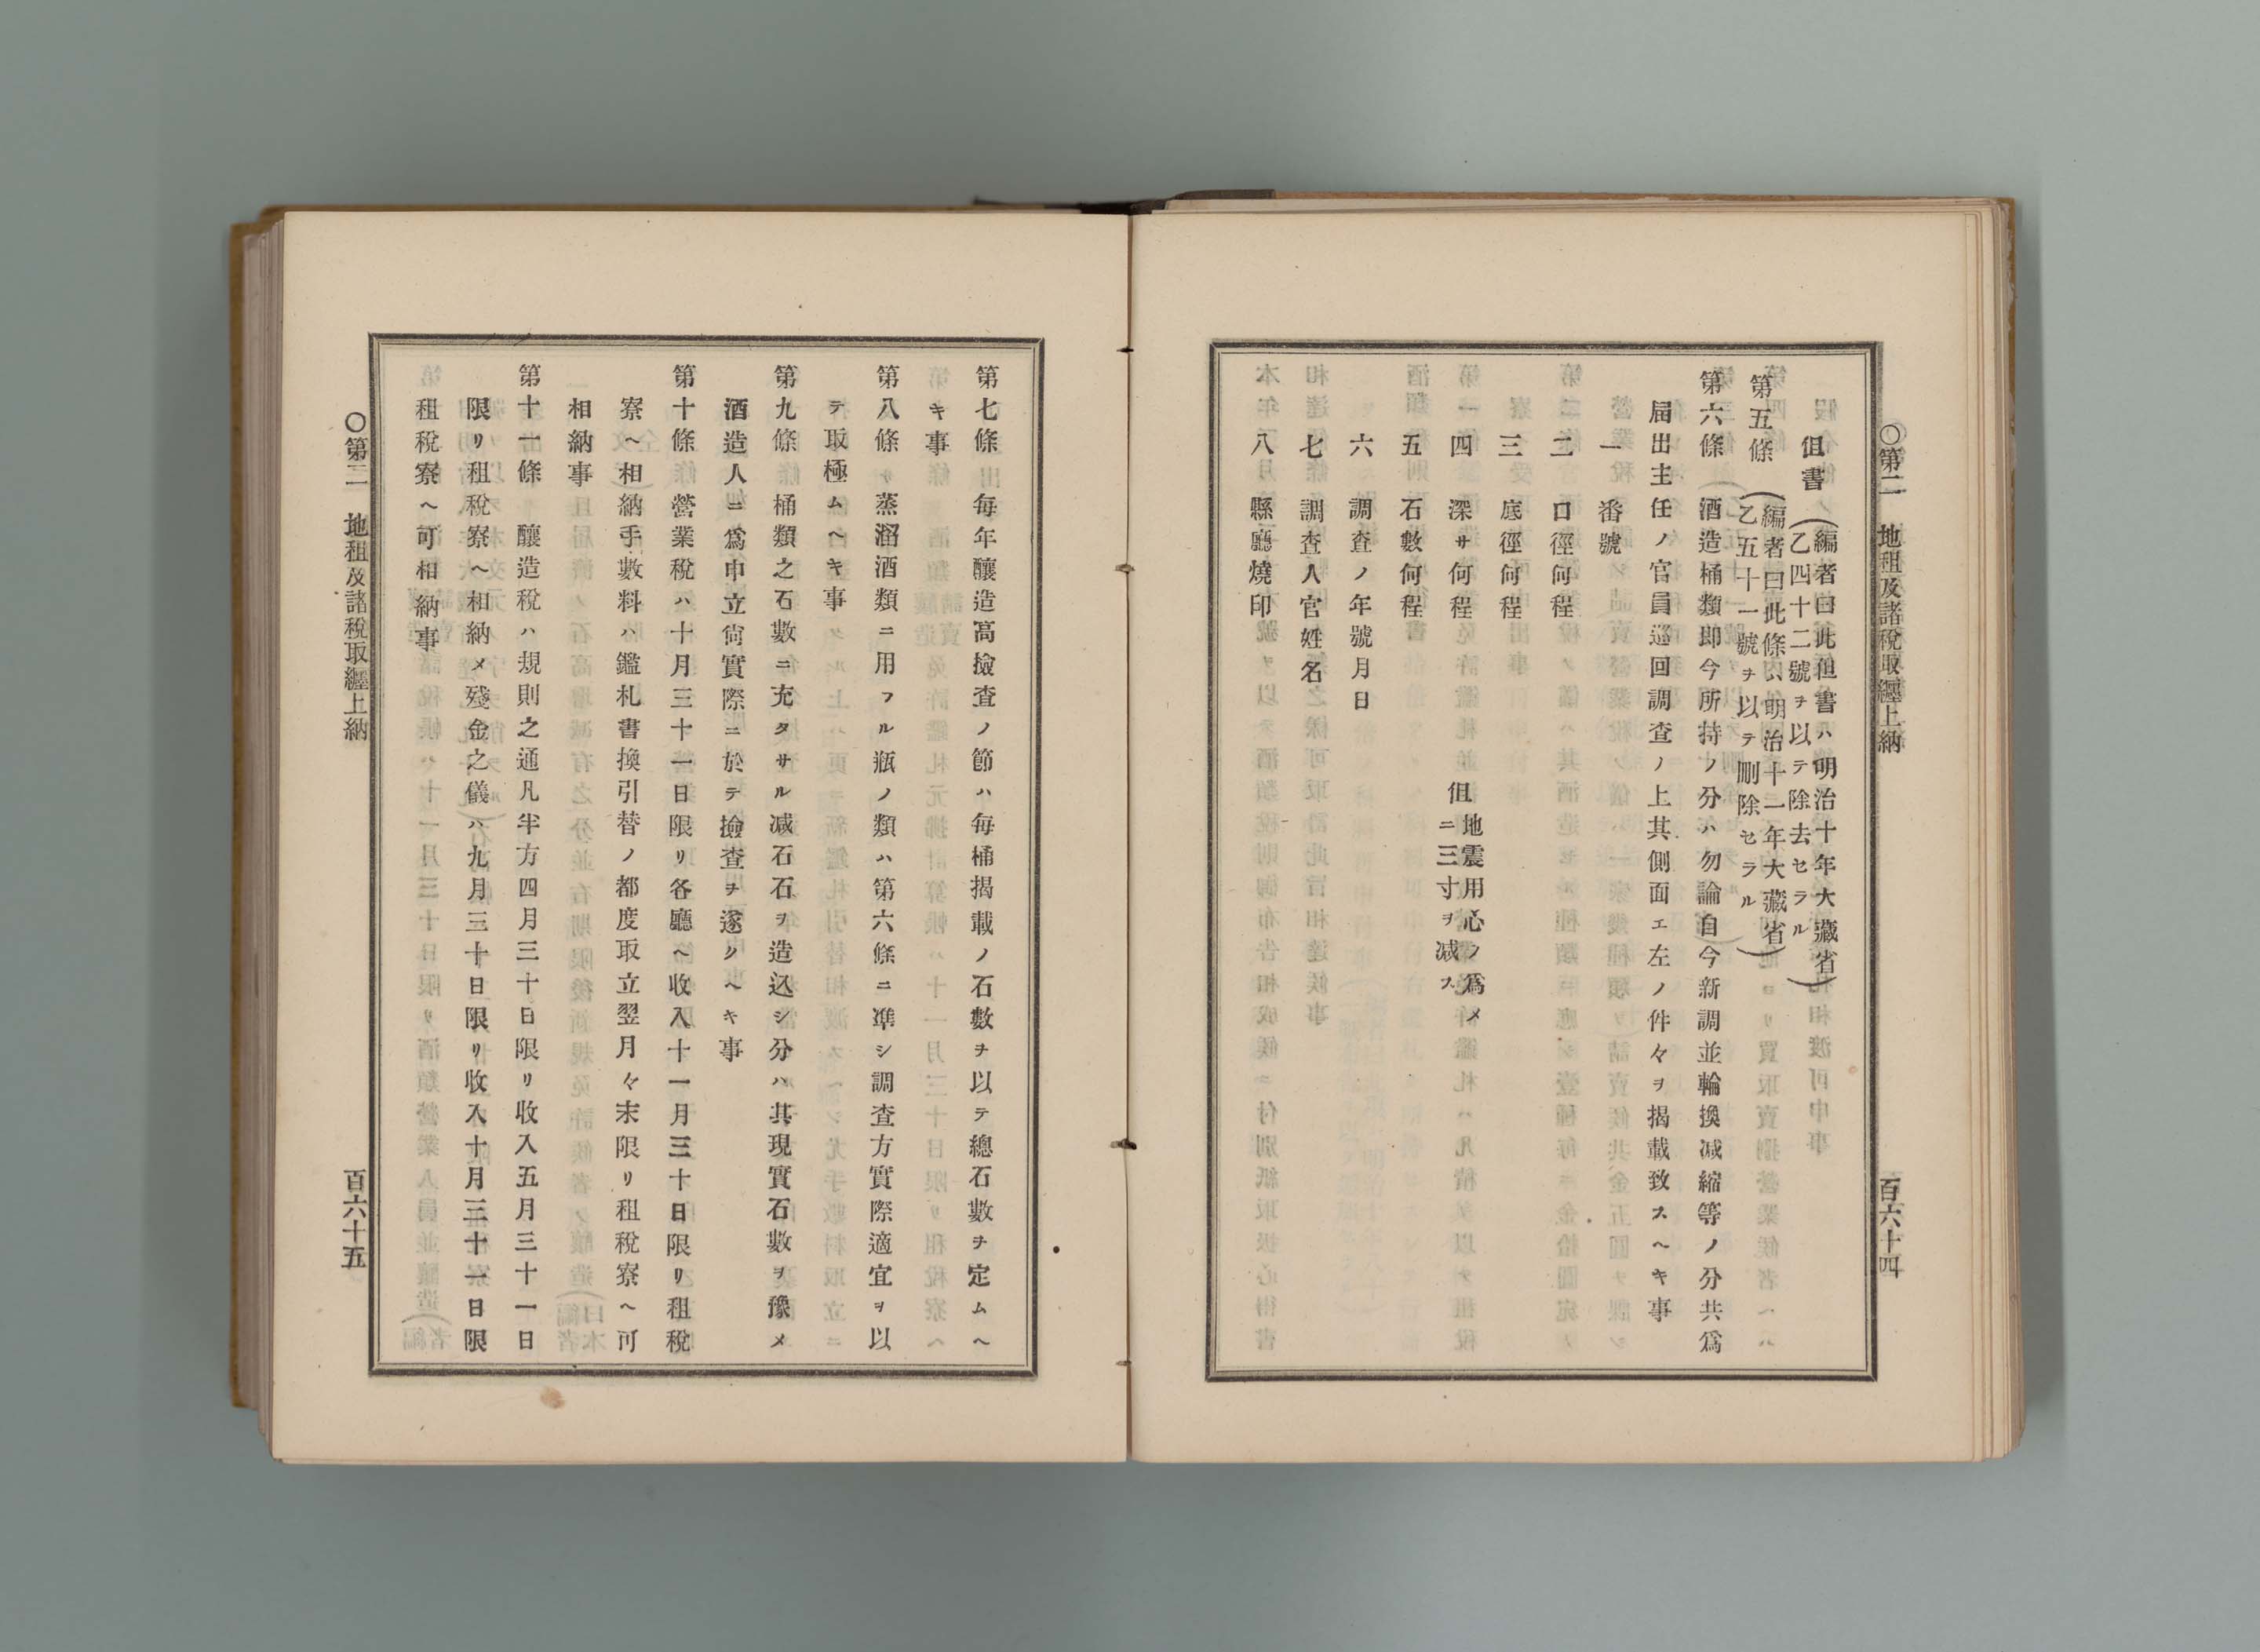 ○第二　地租及諸税取纒上納
百六十四
但書
(編者曰此但書ハ明治十年大藏省
乙四十二號ヲ以テ除去セラル)
第五條
(編者曰此條ハ明治十一年大藏省
乙五十一號ヲ以テ刪除セラル)
第六條　酒造桶類即今所持ノ分ハ勿論自今新調並輪換減縮等ノ分共爲
屆出主任ノ官員巡回調査ノ上其側面エ左ノ件々ヲ揭載致スヘキ事
一　番號
二　口徑何程
三　底徑何程
四　深サ何程　但
地震用心ノ爲メ
ニ三寸ヲ減ス
五　石數何程
六　調査ノ年號月日
七　調査人官姓名
八　縣廳燒印
第七條　每年釀造高撿査ノ節ハ每桶揭載ノ石數ヲ以テ總石數ヲ定ムヘ
キ事
第八條　蒸溜酒類ニ用フル瓶ノ類ハ第六條ニ凖シ調査方實際適宜ヲ以
テ取極ムヘキ事
第九條　桶類之石數ニ充タサル減石石ヲ造込シ分ハ其現實石數ヲ豫メ
酒造人ニ爲申立尙實際ニ於テ撿査ヲ遂クヘキ事
第十條　營業稅ハ十月三十一日限リ各廳ヘ收入十一月三十日限リ租稅
寮ヘ相納手數料ハ鑑札書換引替ノ都度取立翌月々末限リ租稅寮ヘ可
相納事
第十一條　釀造稅ハ規則之通凡半方四月三十日限リ收入五月三十一日
限リ租稅寮ヘ相納メ殘金之儀ハ九月三十日限リ收入十月三十一日限
租稅寮ヘ可相納事
○第二　地租及諸税取纒上納
百六十五